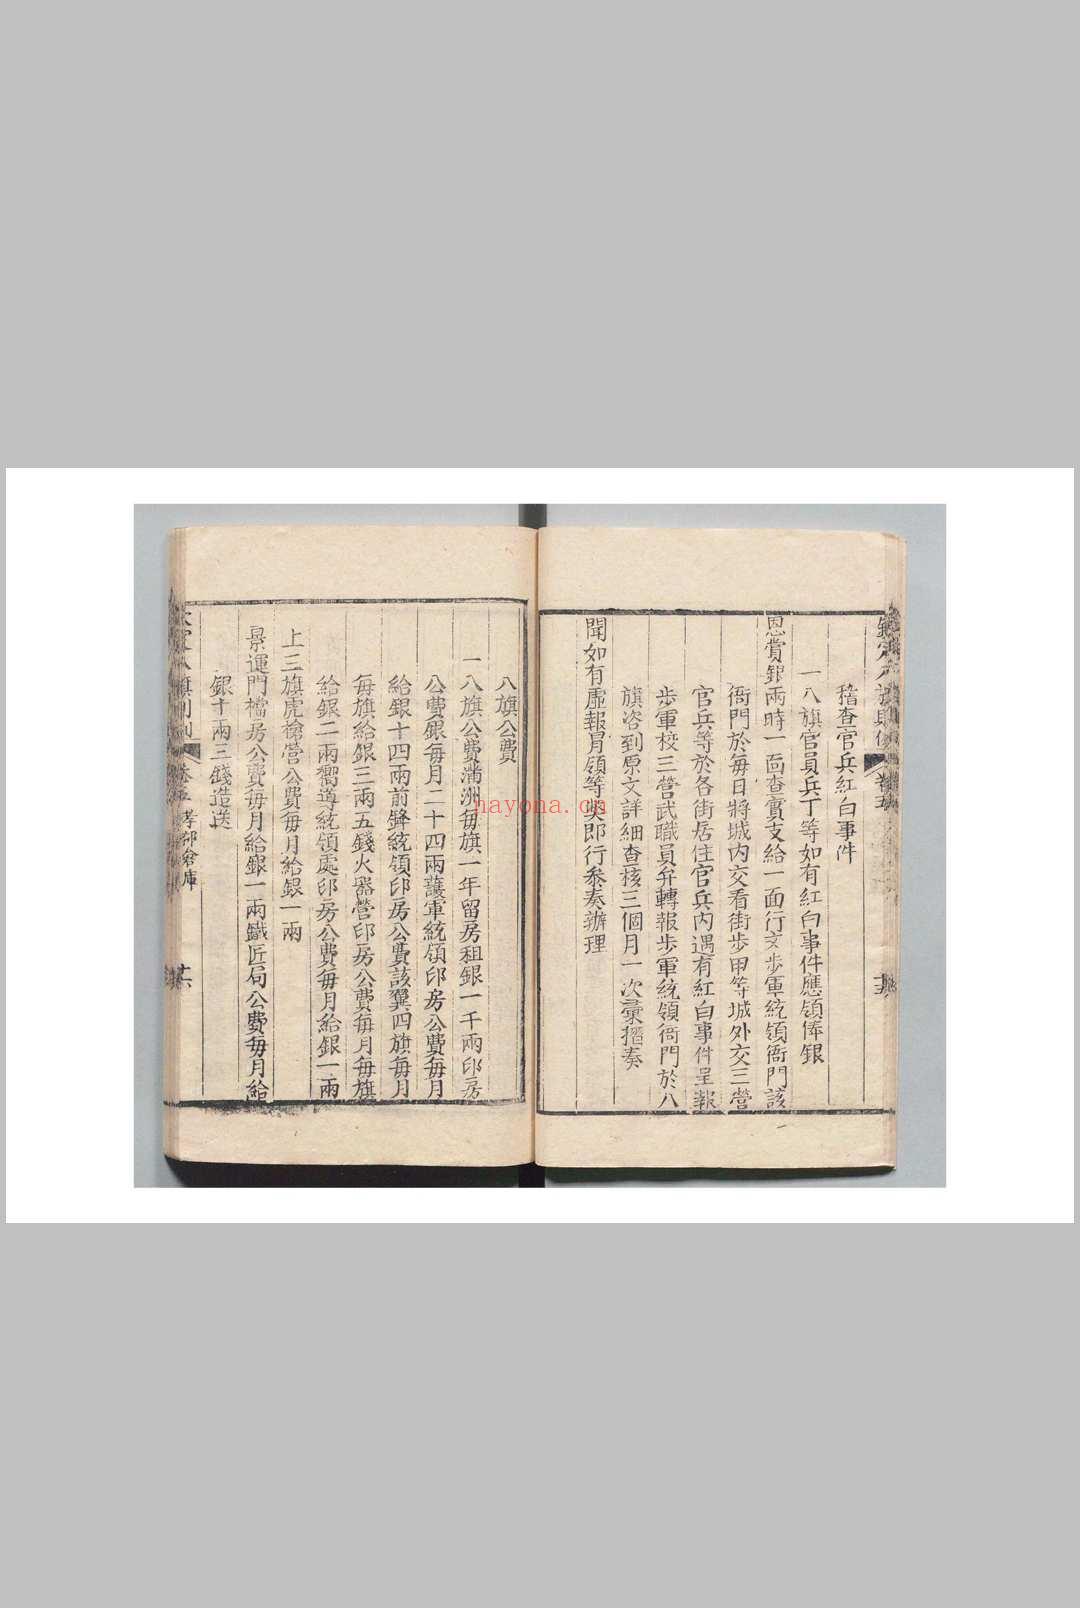 稽查官兵紅白事件
一八旗官員兵丁等如有紅白事件應領俸銀
恩賞銀兩時一面查實支給一面行文步軍統領衙門該
衙門於每日將城内交看街步甲等城外交三營
官兵等於各街居住官兵内遇有紅白事件呈報
步軍校三營武職員弁轉報步軍統領衙門於八
旗咨到原文詳細查核三個月一次彙摺奏
聞如有虛報冐領等獘即行叅奏辦理
八旗公費
一八旗公費滿洲每旗一年留房租銀一千兩印房
公費銀每月二十四兩護軍統領印房公費每月
給銀十四兩前鋒統領印房公費該翼四旗每月
每旗給銀三兩五錢火器營印房公費每月每旗
給銀二兩嚮導統領處印房公費每月給銀一兩
上三旗虎槍營公費每月給銀一兩
景運門檔房公費每月給銀一兩鐵匠局公費每月給
銀十兩三錢造送
卷五
倉庫
hayona.cn